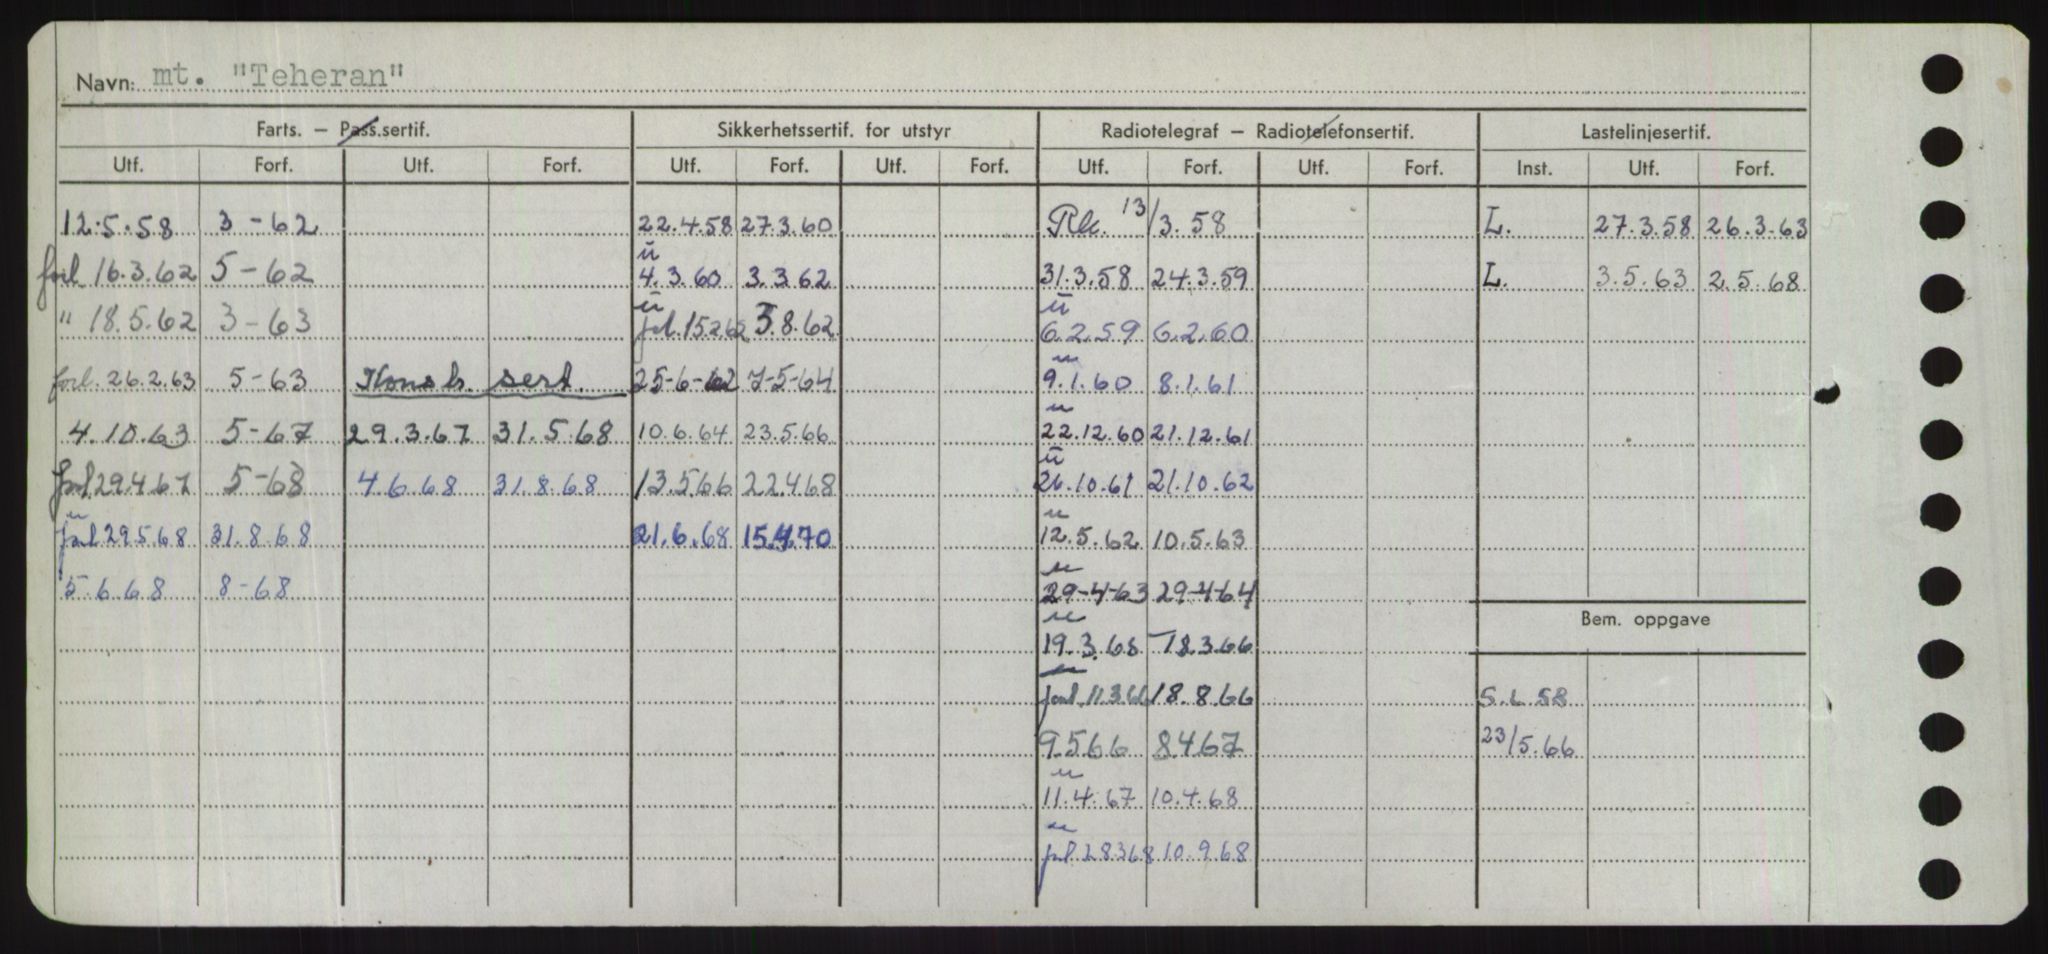 Navn: mt. "Teheran"
Farts. – Pass.sertif. Sikkerhetssertif. for utstyr Radiotelegraf – Radiotelefonsertif. Lastelinjesertif.
Utf. Forf. Utf. Forf. Utf. Forf. Utf. Forf. Utf. Forf. Utf. Forf. Inst. Utf. Forf.
12.5.58 3-62 22.4.58 27.3.60 13/3.58 L. 27.3.58 26.3.63
forl 16.3.62 5-62 ü 4.3.60 3.3.62 31.3.58 24.3.59 L. 3.5.63 2.5.68
" 18.5.62 3-63 ü fol. 15.2.62 3.8.62 ü 6.2.59 6.2.60
forl. 26.2.63 5-63 Konstr. sert. 25-6-62 7-5-64 u 9.1.60 8.1.61
4.10.63 5-67 29.3.67 31.5.68 10.6.64 23.5.66 u 22.12.60 21.12.61
forl 29.4.67 5-68 4.6.68 31.8.68 13.5.66 22.4.68 ü 26.10.61 21.10.62
u forl 29.5.68 31.8.68 21.6.68 15.4.70 u 12.5.62 10.5.63
5.6.68 8-68 u 29-4-63 29-4-64
Bem. oppgave
u 19.3.65 18.3.66
u forl 11.3.66 18.8.66 5.6.58
9.5.66 8.4.67 23/5.66
u 11.4.67 10.4.68
u forl 28368 10.9.68